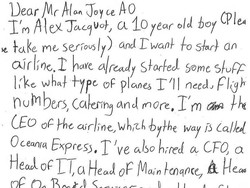 Dear Mr Alan Joyce AO
I'm Alex Jacquot, a 10 year old boy (Plea
se take me seriously) and I want to start an
airline. I have already started some stuff
like what type of planes I'll need. Fligh
numbers, catering and more. I'm the
CEO of the airline, which by the way is called
Oceania Express. I've also hired a CFO, a
Head of IT, a Head of Maintenance, a Head
of On Board